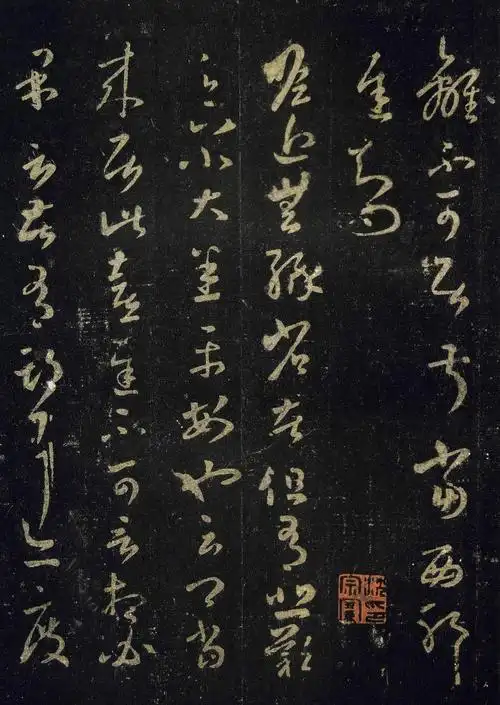 離不可居叔當西耶
遲知問
瞻近無緣省苦但有悲歎
足下小大悉平安也云卿當
來居此喜遲不可言想必
果言苦有期耳亦度